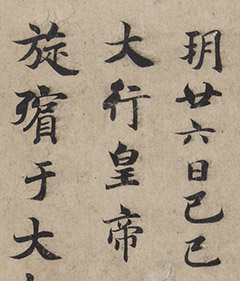 玥廿六日己巳
大行皇帝
旋殯于大